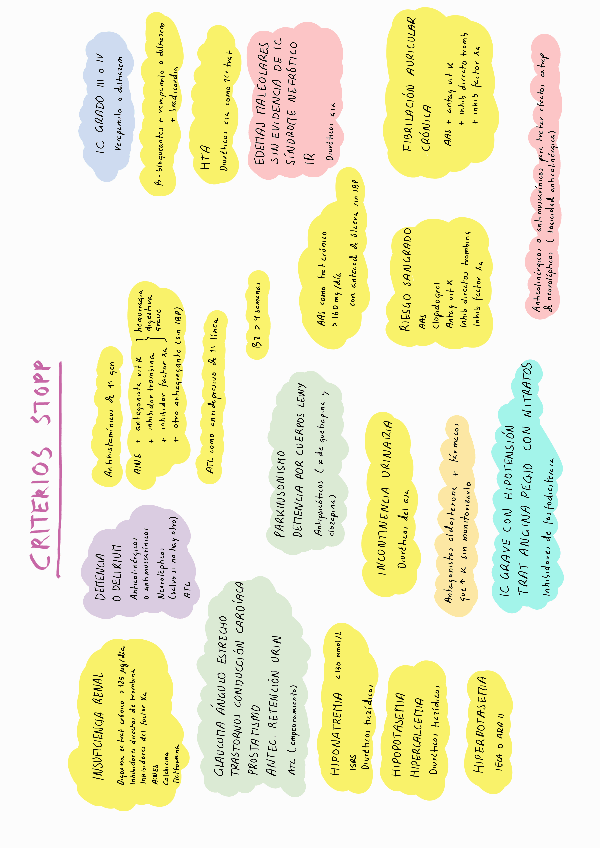 CRITERIOS STOPP
INSUFICIENCIA RENAL
Digoxina en trat crónico > 125 µg/día
Inhibidores directos de trombina
Inhibidores del factor Xa
AINEs
Colchicina
Metformina
DEMENCIA
O DELIRIUM
Anticolinérgicos
o antimuscarínicos
Neurolépticos
(salvo si no hay otro)
ATC
Antihistamínicos de 1ª gen
AINE + antagonista vit K
+ inhibidor trombina
+ inhibidor factor Xa
hemorragia
digestiva
grave
+ otro antiagregante (sin IBP)
ATC como antidepresivo de 1ª línea
BZ > 4 semanas
IC GRADO III o IV
Verapamilo o diltiazem
β-bloqueantes + verapamilo o diltiazem
+ bradicardia
HTA
Diuréticos asa como 1er trat
EDEMAS MALEOLARES
SIN EVIDENCIA DE IC
SÍNDROME NEFRÓTICO
IR
Diuréticos asa
GLAUCOMA ÁNGULO ESTRECHO
TRASTORNOS CONDUCCIÓN CARDÍACA
PROSTATISMO
ANTEC RETENCIÓN URIN
ATC (empeoramiento)
PARKINSONISMO
DEMENCIA POR CUERPOS LEWY
Antipsicóticos (≠ de quetiapina y
clozapina)
AAS como trat crónico
> 160 mg/día
con anteced de úlcera sin IBP
HIPONATREMIA < 130 mmol/L
ISRS
Diuréticos tiazídicos
INCONTINENCIA URINARIA
Diuréticos del asa
RIESGO SANGRADO
AAS
Clopidogrel
Antag vit K
Inhib directos trombina
Inhib factor Xa
FIBRILACIÓN AURICULAR
CRÓNICA
AAS + antag vit K
+ inhib directo tromb
+ inhib factor Xa
HIPOPOTASEMIA
HIPERCALCEMIA
Diuréticos tiazídicos
Antagonistas aldosterona + fármacos
que ↑ K sin monitorizarlo
HIPERPOTASEMIA
IECA o ARA II
IC GRAVE CON HIPOTENSIÓN
TRAT ANGINA PECHO CON NITRATOS
Inhibidores de fosfodiesterasa
Anticolinérgicos o antimuscarínicos para tratar efectos extrap
de neurolépticos (toxicidad anticolinérgica)